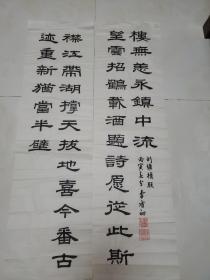 襟江帶湖撐天拔地喜今番古
迹重新猶當半壁
望雲招鶴載酒題詩願從此斯
樓無恙永鎮中流